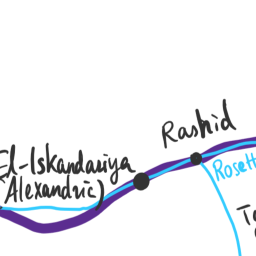 Rashid
El-Iskandariya
(Alexandric)
Rosett
To